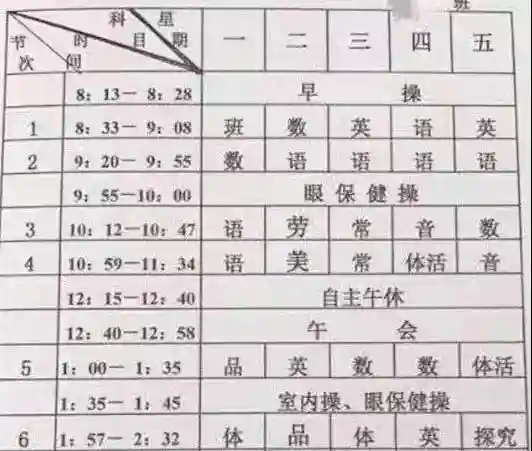 班
科 星
节 时 目 期 一 二 三 四 五
次 间
8：13－8：28 早 操
1 8：33－9：08 班 数 英 语 英
2 9：20－9：55 数 语 语 语 语
9：55－10：00 眼保健操
3 10：12－10：47 语 劳 常 音 数
4 10：59－11：34 语 美 常 体活 音
12：15－12：40 自主午休
12：40－12：58 午 会
5 1：00－1：35 品 英 数 数 体活
1：35－1：45 室内操、眼保健操
6 1：57－2：32 体 品 体 英 探究